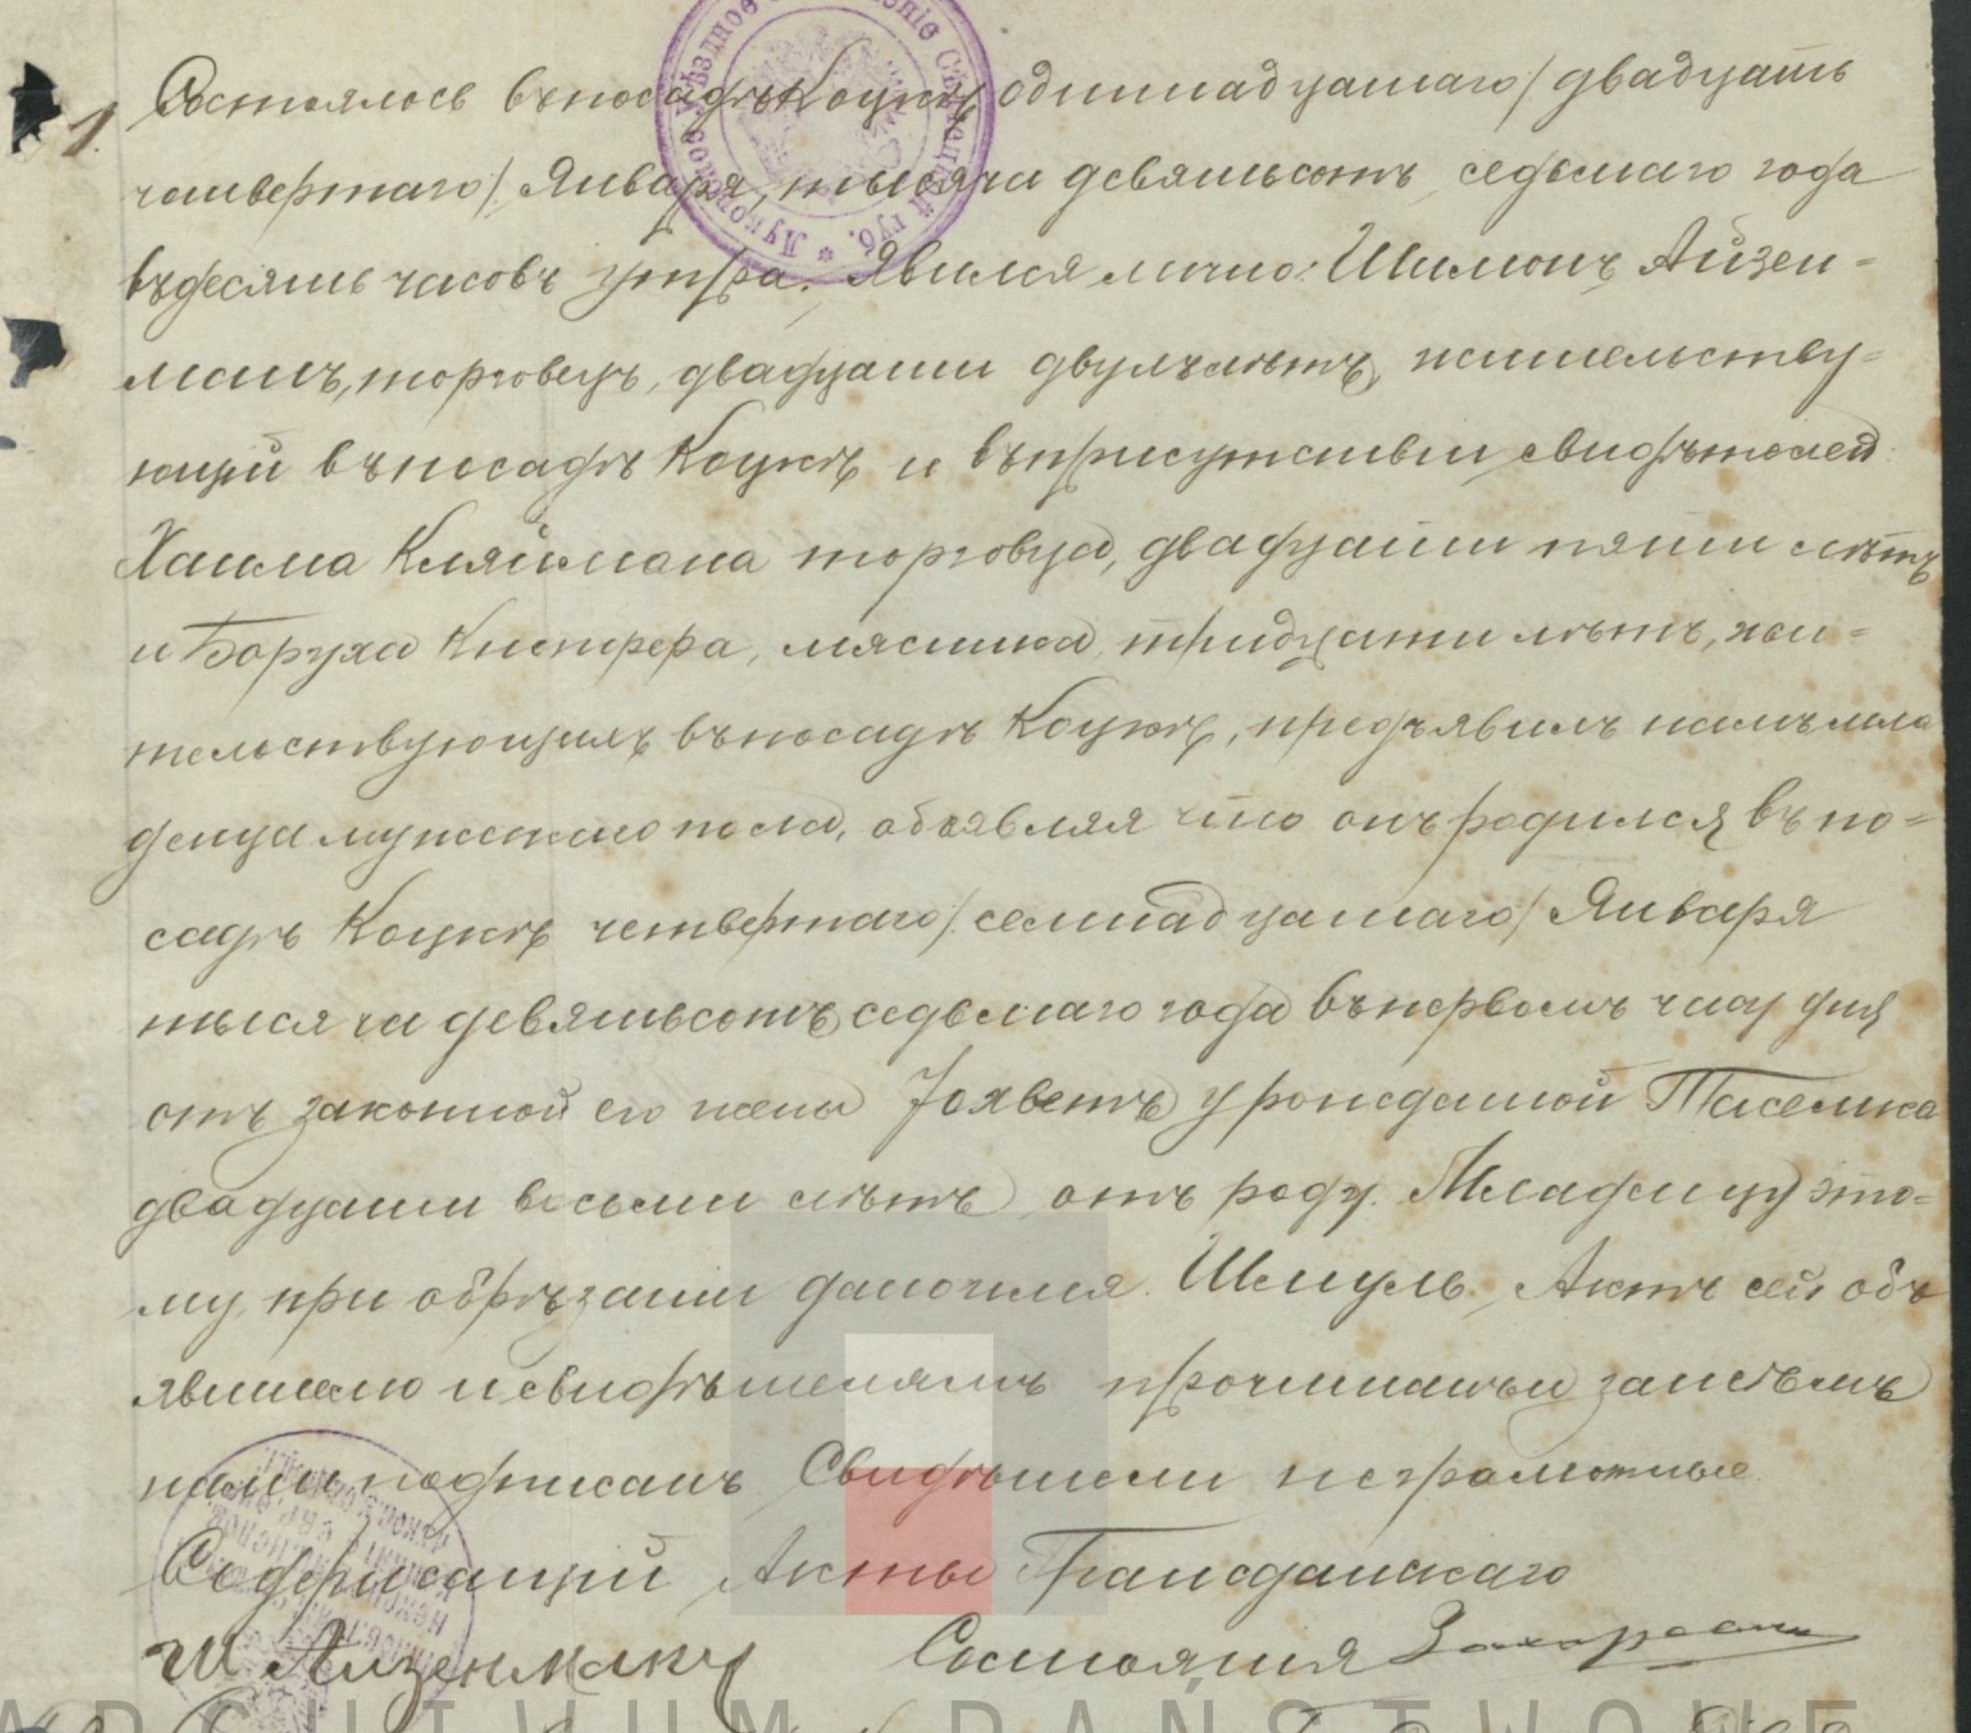 1.
Состоялось въ посадѣ Коцкѣ одиннадцатаго / двадцать
четвертаго / Января, тысяча девятьсотъ седьмаго года
въ десять часовъ утра. Явился лично: Шимонъ Айзен-
манъ, торговецъ, двадцати двухъ лѣтъ, жительству-
ющій въ посадѣ Коцкѣ и въ присутствіи свидѣтелей:
Хаима Кляймана торговца, двадцати пяти лѣтъ
и Боруха мясника, тридцати лѣтъ, жи-
тельствующихъ въ посадѣ Коцкѣ, предъявилъ намъ мла
денца мужескаго пола, объявляя что онъ родился въ по-
садѣ Коцкѣ четвертаго / семнадцатаго / Января
тысяча девятьсотъ седьмаго года въ первомъ часу дня
отъ законной его жены урожденной
двадцати восьми лѣтъ отъ роду. Младенцу это-
му при обрѣзаніи дано имя Шмуль. Актъ сей объ
явителю и свидѣтелямъ прочитанъ и затѣмъ
нами подписанъ Свидѣтели неграмотные.
Содержащій Акты Гражданскаго
Ш Айзенманъ Состоянія
ARCHIWUM PAŃSTWOWE